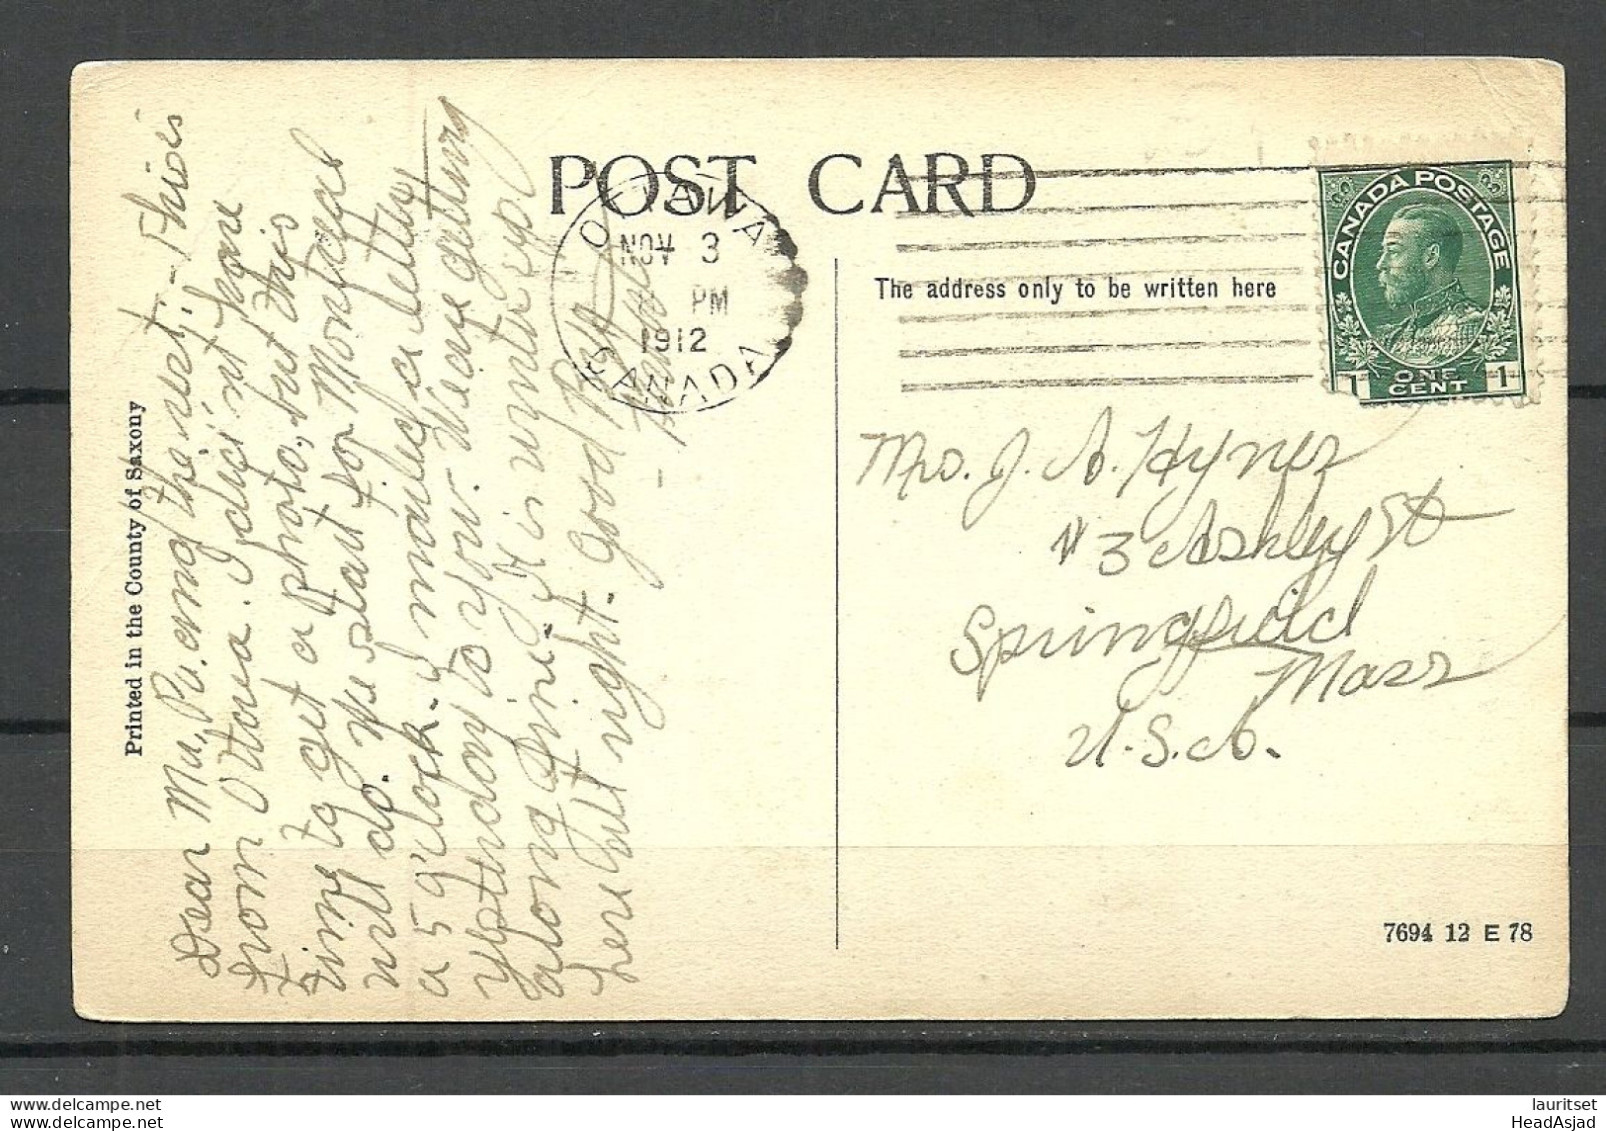 POST CARD
OTTAWA
NOV 3
PM
1912
CANADA
CANADA POSTAGE
ONE CENT
1 1
The address only to be written here
Mrs. J. A. Hynes
# 3 Ashley St
Springfield
Mass
U.S.A.
Dear Ma, Pa. and the rest:- This is
from Ottawa. I didn't have
time to get a photo, but this
will do. We start for Montreal
a 5 o'clock. I mailed a letter
yesterday to you. We are getting
along fine. It is winter up
here all right. Good Bye
Printed in the County of Saxony
7694 12 E 78
lauritset
HeadAsjad